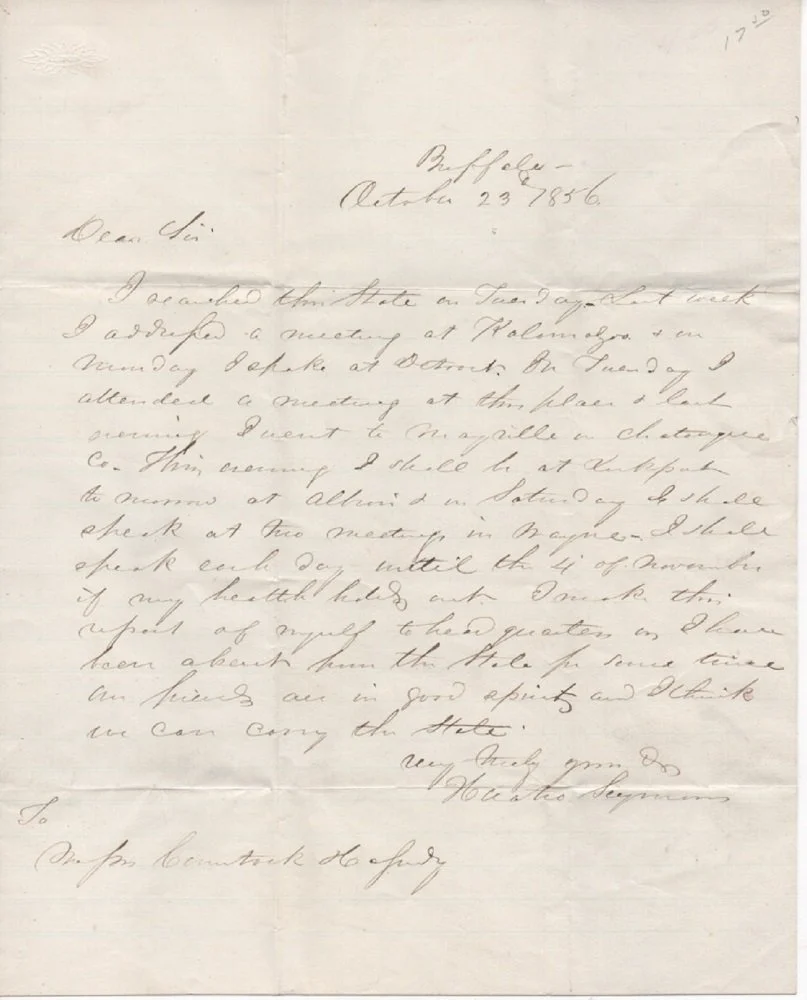 17 50
Buffalo -
October 23d 1856.
Dear Sir
I reached this State on Tuesday. Last week
I addressed a meeting at Kalamazoo & on
Monday I spoke at Detroit. On Tuesday I
attended a meeting at this place & last
evening I went to Mayville in Chatauque
Co. This evening I shall be at Lockport
to morrow at Albion & on Saturday I shall
speak at two meetings in Wayne - I shall
speak each day until the 4 of November
if my health holds out. I make this
report of myself to head quarters as I have
been absent from the State for some time
Our friends are in good spirits and I think
we can carry the State.
Very truly yours &c
Horatio Seymour
To
Messrs Comstock &